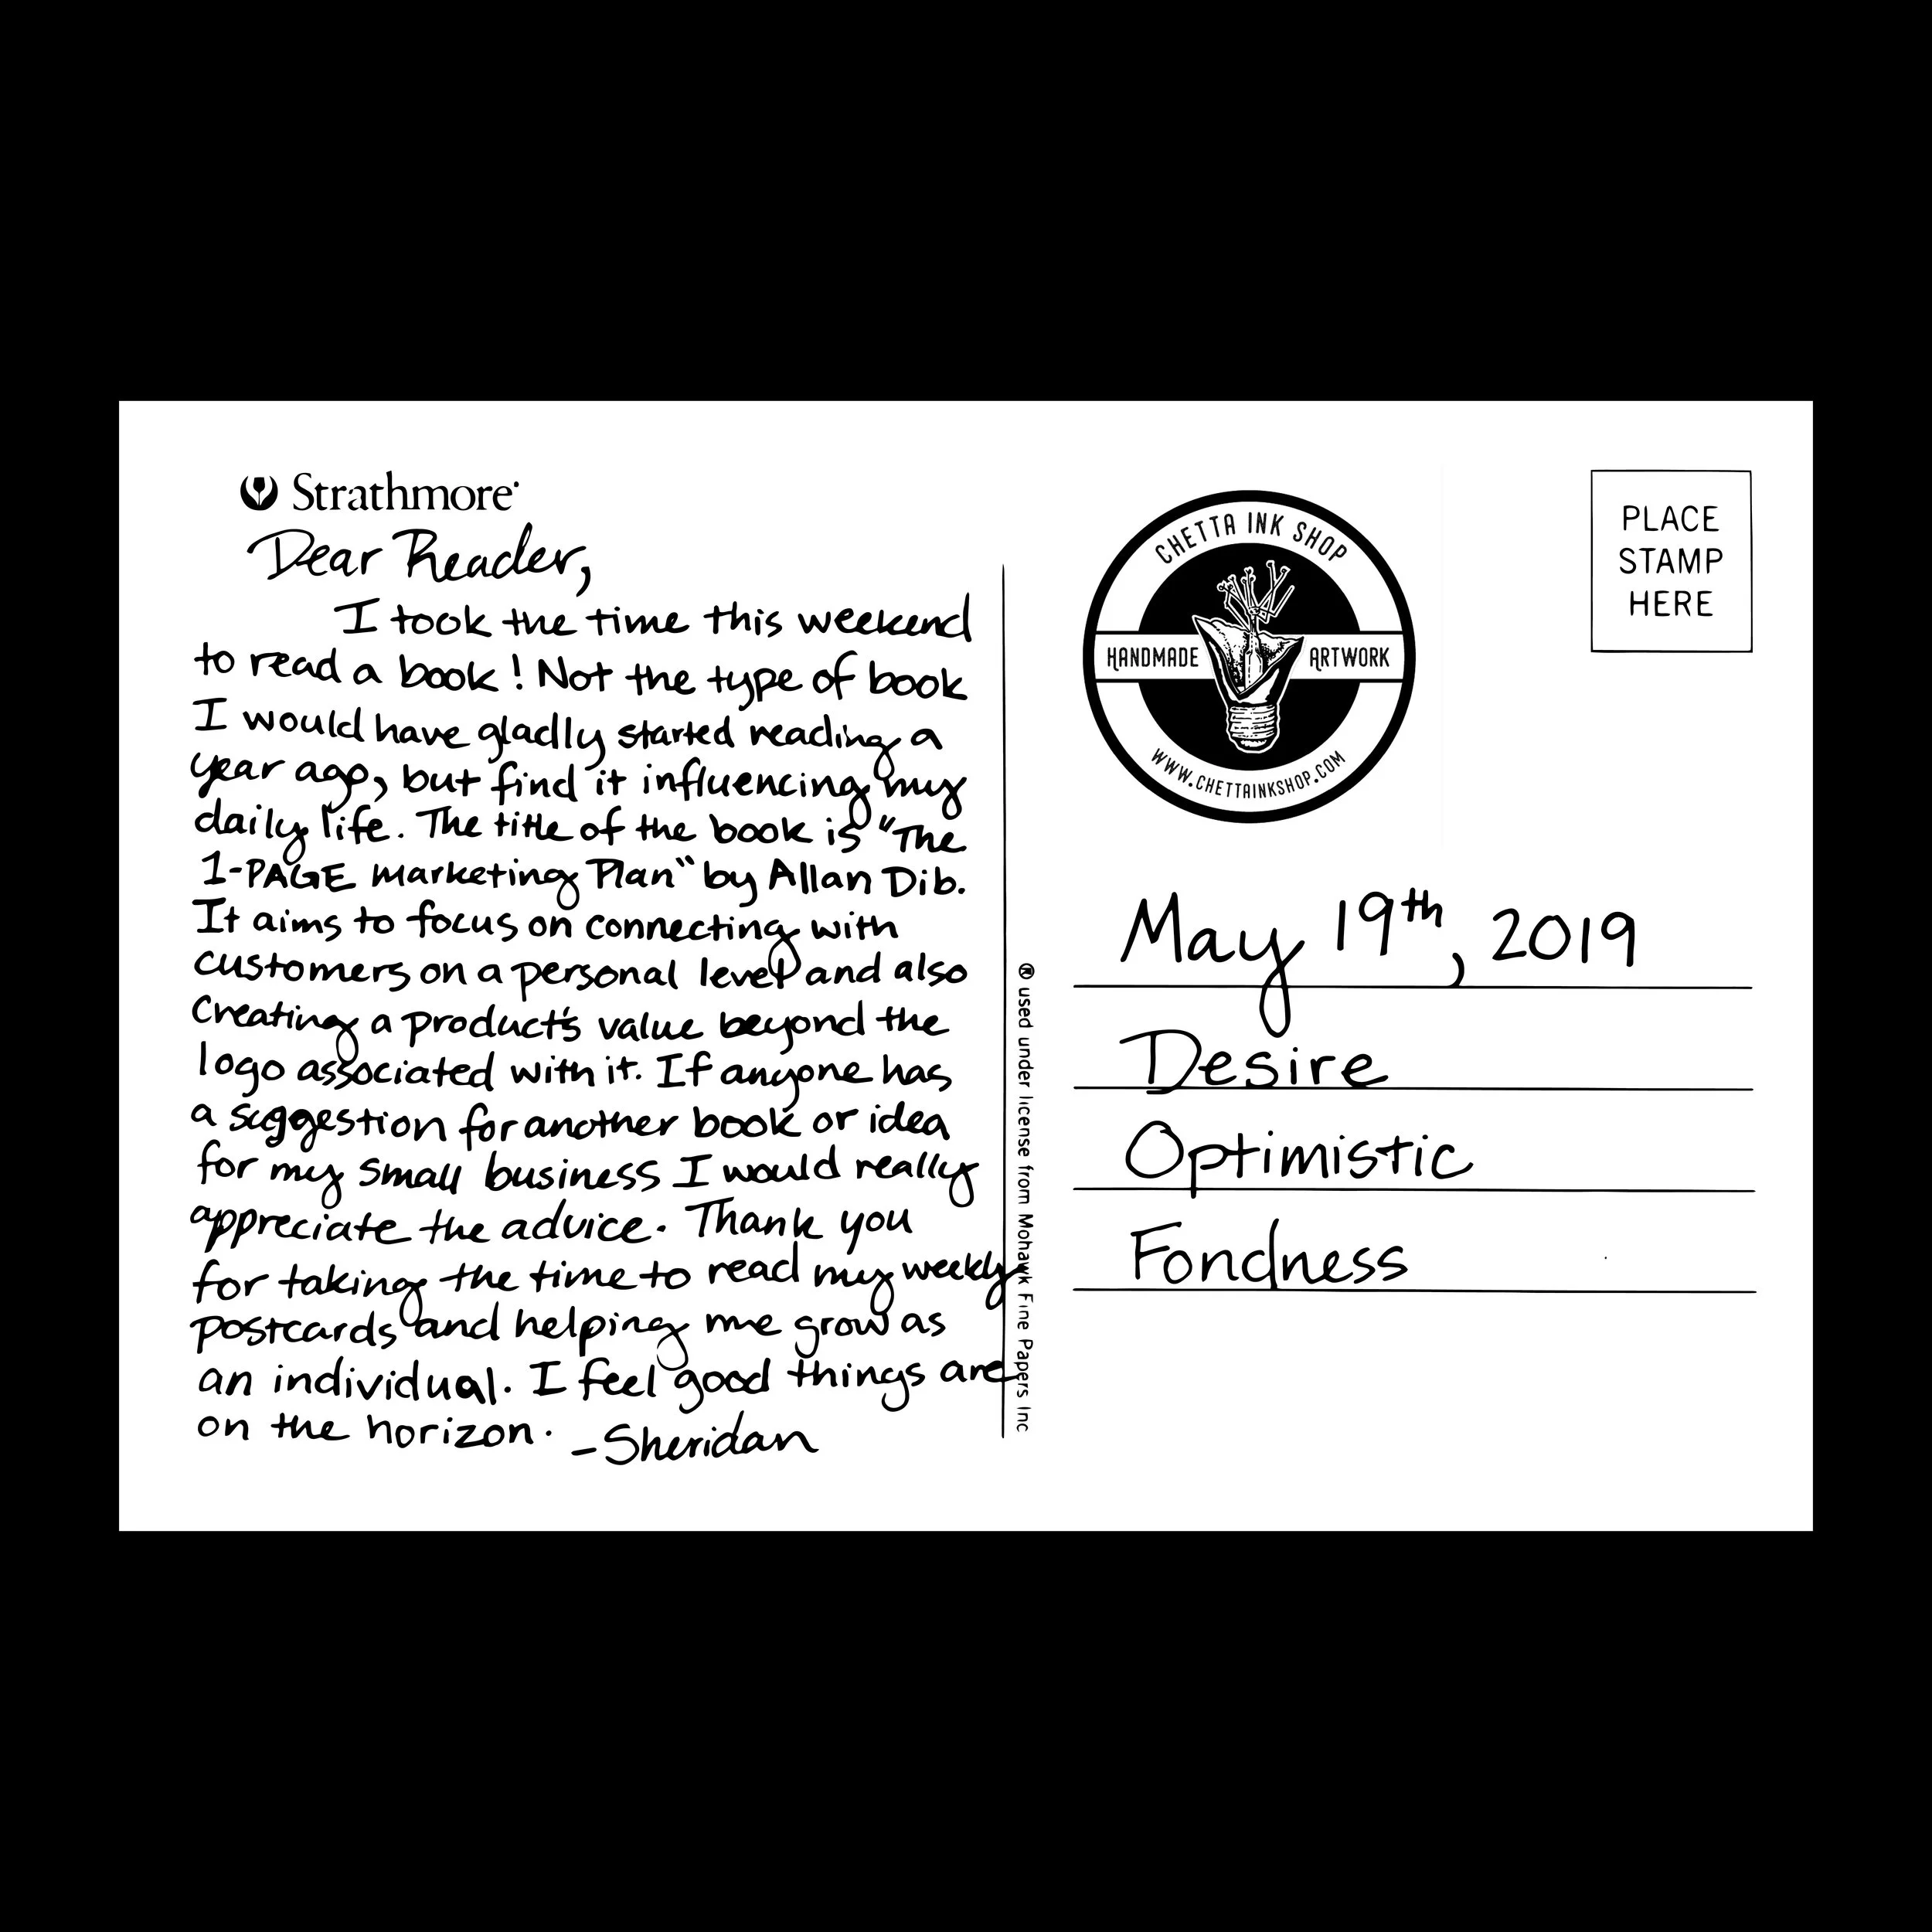 Strathmore®
Dear Reader,
I took the time this weekend
to read a book! Not the type of book
I would have gladly started reading a
year ago, but find it influencing my
daily life. The title of the book is "The
1-PAGE Marketing Plan" by Allan Dib.
It aims to focus on connecting with
customers on a personal level and also
creating a product's value beyond the
logo associated with it. If anyone has
a suggestion for another book or idea
for my small business I would really
appreciate the advice. Thank you
for taking the time to read my weekly
postcards and helping me grow as
an individual. I feel good things are
on the horizon. -Sheridan
® used under license from Mohawk Fine Papers Inc
CHETTA INK SHOP
HANDMADE ARTWORK
WWW.CHETTAINKSHOP.COM
PLACE
STAMP
HERE
May 19th, 2019
Desire
Optimistic
Fondness